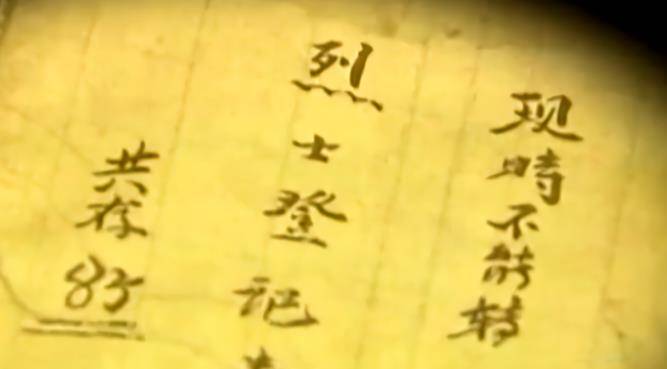 现時不能转
烈士登记
共存85